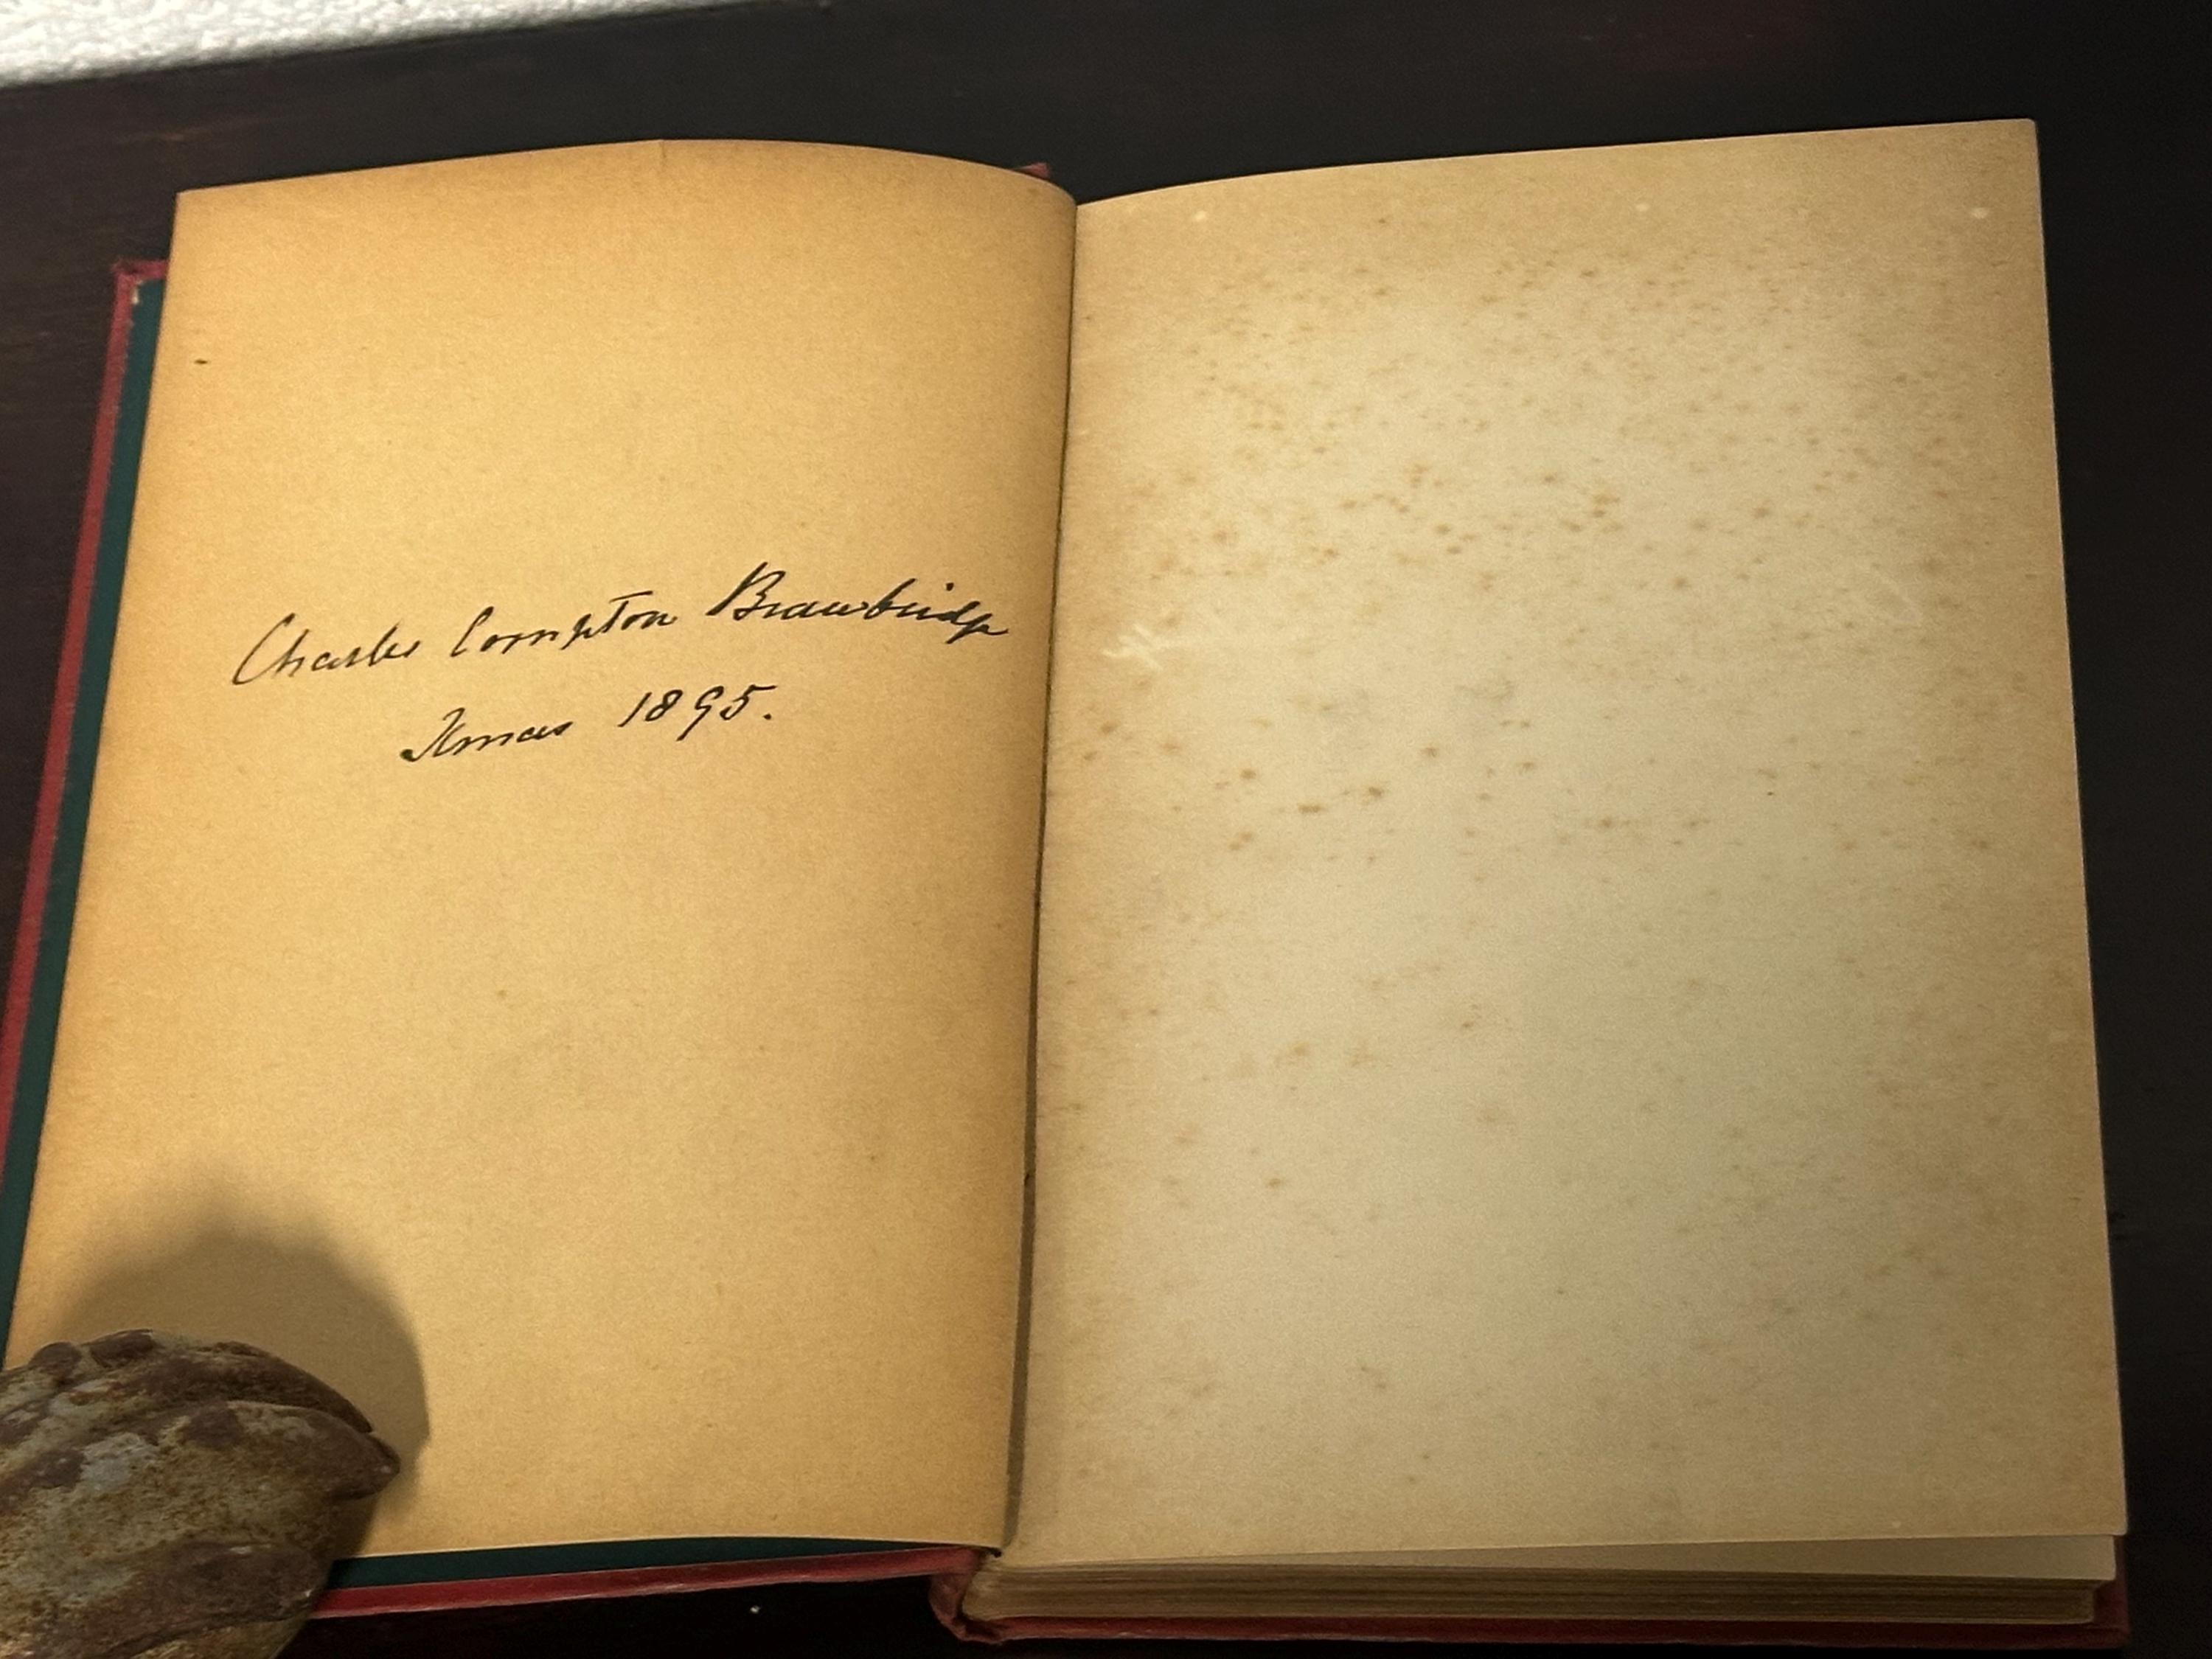 Charles Compton Brawbridge
Xmas 1895.